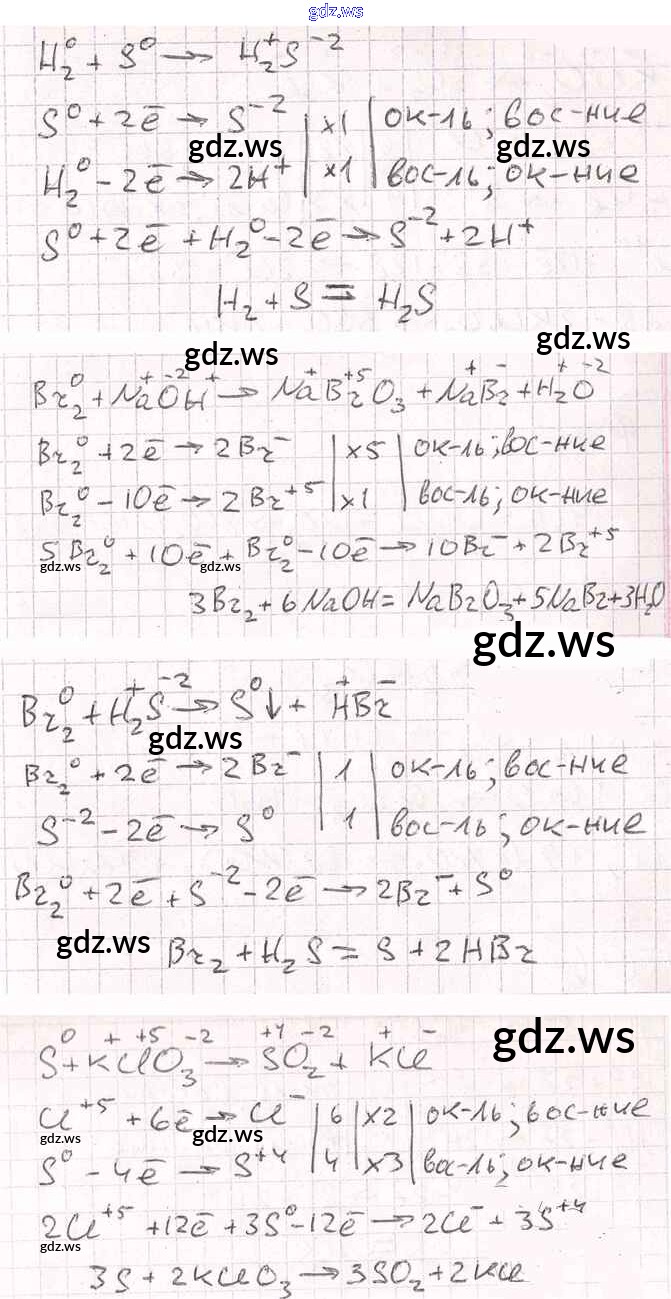 gdz.ws
H₂⁰ + S⁰ → H₂⁺S⁻²
S⁰ + 2ē → S⁻² | ×1 | ок-ль; вос-ние
gdz.ws gdz.ws
H₂⁰ - 2ē → 2H⁺ | ×1 | вос-ль; ок-ние
S⁰ + 2ē + H₂⁰ - 2ē → S⁻² + 2H⁺
H₂ + S = H₂S
gdz.ws gdz.ws
Br₂⁰ + Na⁺O⁻²H⁺ → Na⁺Br⁺⁵O₃ + Na⁺Br⁻ + H₂⁺O⁻²
Br₂⁰ + 2ē → 2Br⁻ | ×5 | ок-ль; вос-ние
Br₂⁰ - 10ē → 2Br⁺⁵ | ×1 | вос-ль; ок-ние
5Br₂⁰ + 10ē + Br₂⁰ - 10ē → 10Br⁻ + 2Br⁺⁵
gdz.ws gdz.ws
3Br₂ + 6NaOH = NaBrO₃ + 5NaBr + 3H₂O
gdz.ws
Br₂⁰ + H₂⁺S⁻² → S⁰↓ + H⁺Br⁻
gdz.ws
Br₂⁰ + 2ē → 2Br⁻ | 1 | ок-ль; вос-ние
S⁻² - 2ē → S⁰ | 1 | вос-ль; ок-ние
Br₂⁰ + 2ē + S⁻² - 2ē → 2Br⁻ + S⁰
gdz.ws
Br₂ + H₂S = S + 2HBr
gdz.ws
S⁰ + K⁺Cl⁺⁵O₃⁻² → S⁺⁴O₂⁻² + K⁺Cl⁻
Cl⁺⁵ + 6ē → Cl⁻ | 6 | ×2 | ок-ль; вос-ние
gdz.ws gdz.ws
S⁰ - 4ē → S⁺⁴ | 4 | ×3 | вос-ль; ок-ние
2Cl⁺⁵ + 12ē + 3S⁰ - 12ē → 2Cl⁻ + 3S⁺⁴
gdz.ws
3S + 2KClO₃ → 3SO₂ + 2KCl